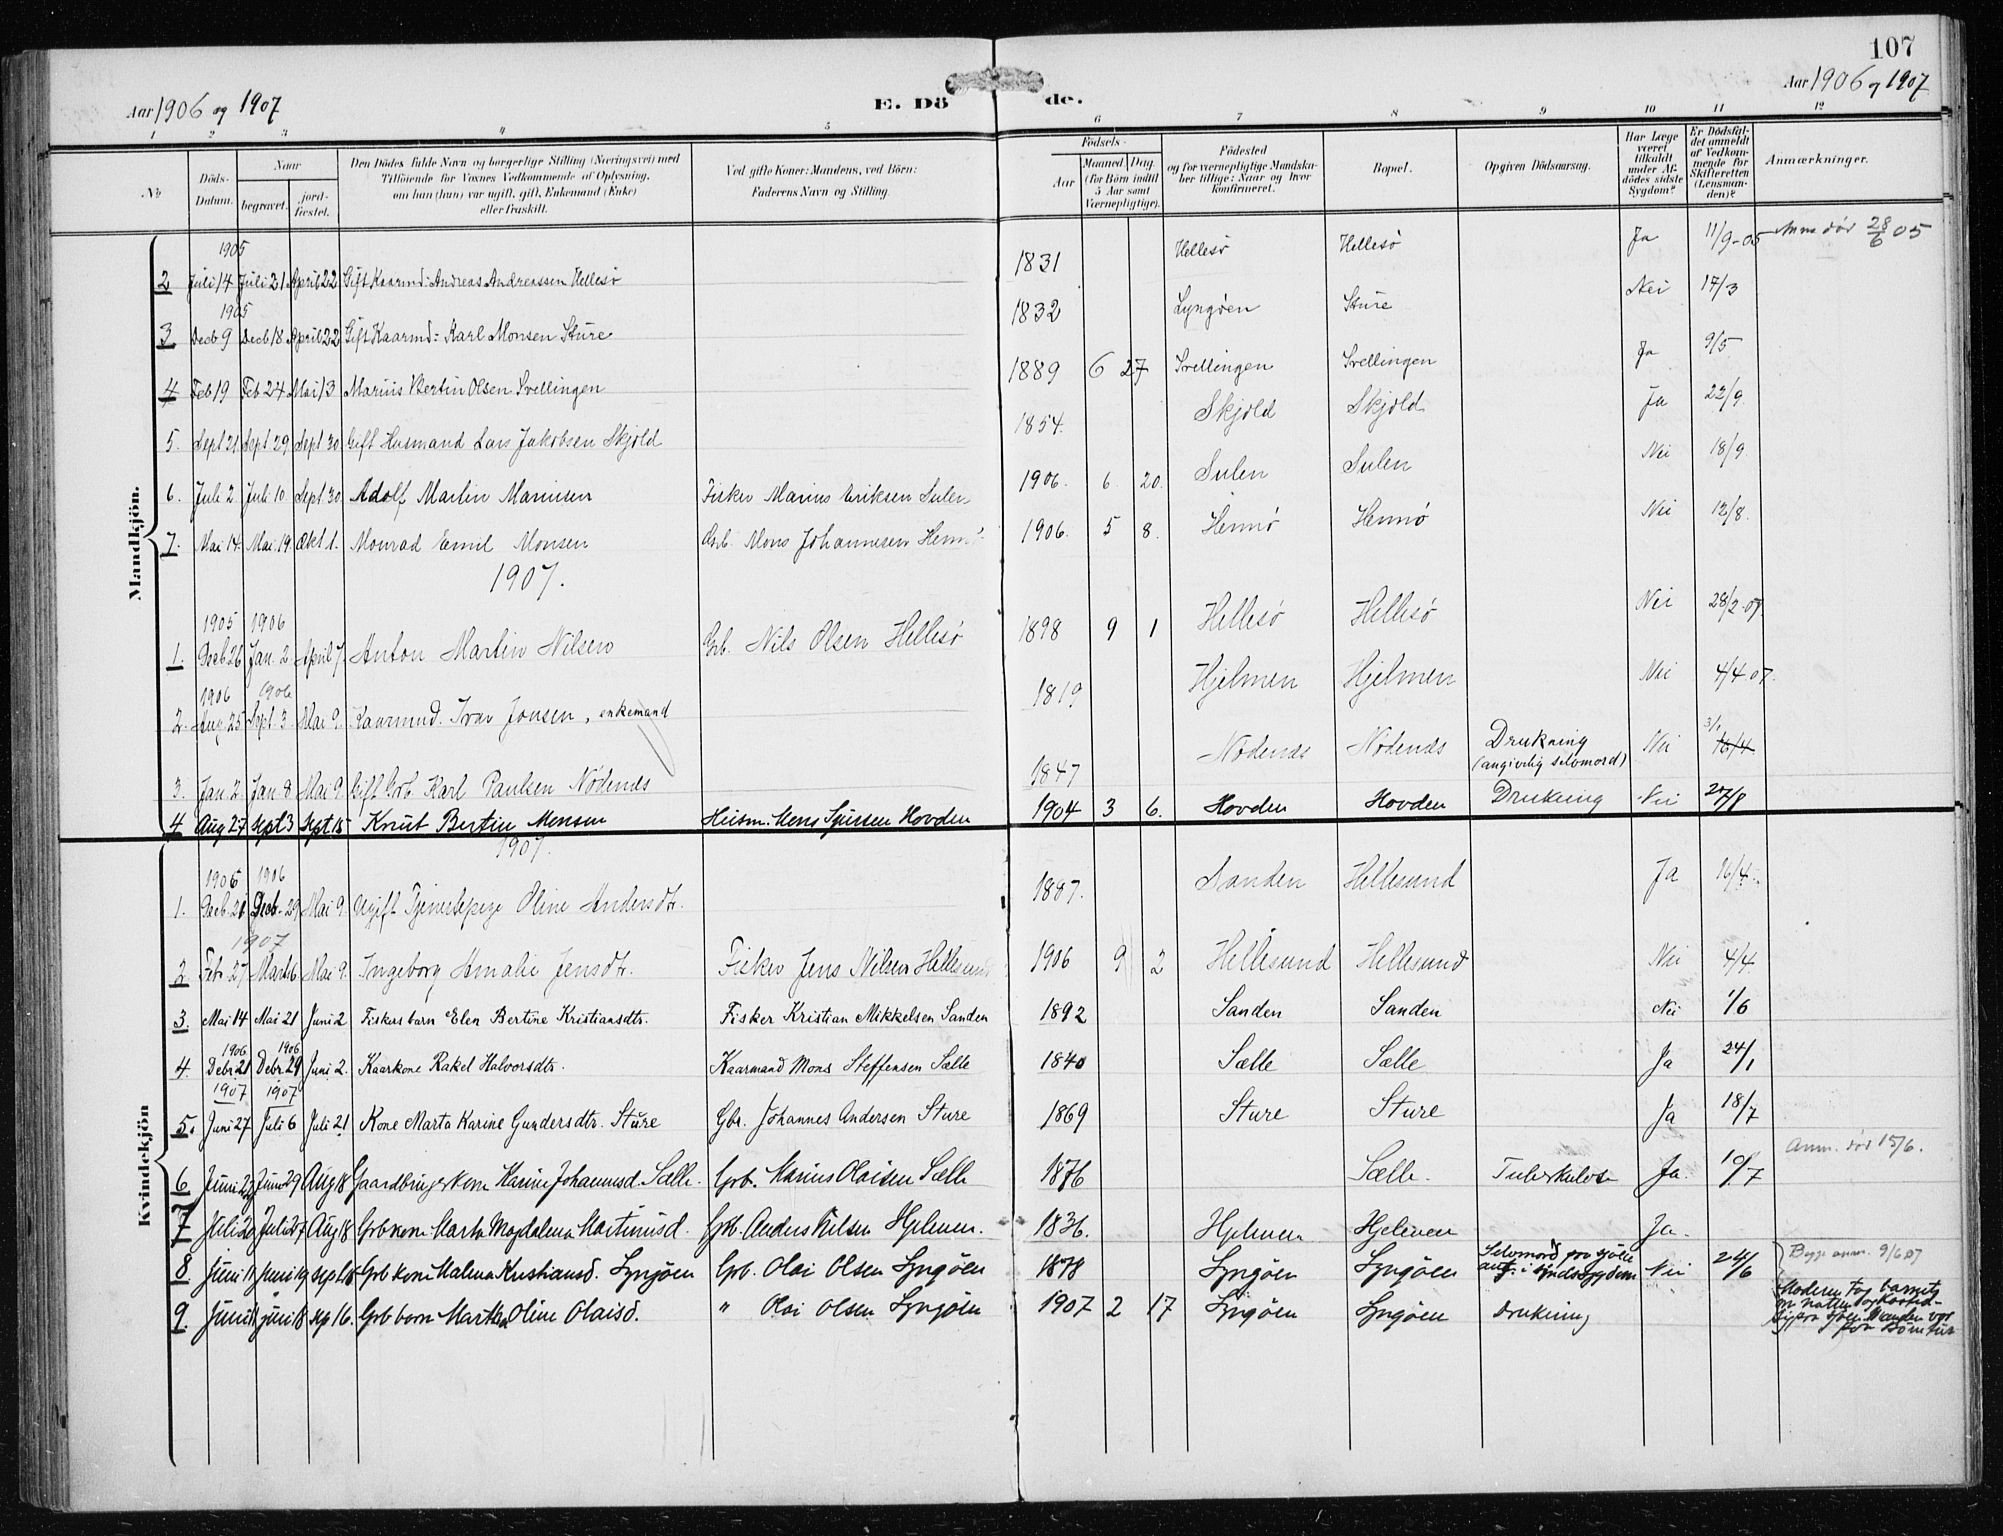 107
Aar 1906 og 1907
E. Döde.
Aar 1906 og 1907
1 2 3 4 5 6 7 8 9 10 11 12
No
Döds-Datum.
Naar
begravet.
jord-fæstet.
Den Dödes fulde Navn og borgerlige Stilling (Næringsvei) med
Tilföiende for Voxnes Vedkommende af Oplysning,
om han (hun) var ugift, gift, Enkemand (Enke)
eller fraskilt.
Ved gifte Koner: Mandens, ved Börn:
Faderens Navn og Stilling.
Födsels-
Aar
Maaned Dag
(for Börn indtil
5 Aar samt
Værnepligtige).
Födested
og for værnepligtige Mandska-
ber tillige: Naar og hvor
konfirmeret.
Bopæl.
Opgiven Dödsaarsag.
Har Læge
været
tilkaldt
under Af-
dödes sidste
Sygdom?
Er Dödsfal-
det anmeldt
af Vedkom-
mende for
Skifteretten
(Lensman-
den)?
Anmærkninger.
Mandkjön.
1905
2 Juli 14 Juli 21 April 22 Gift Kaarmd. Andreas Andreassen Hellesø 1831 Hellesø Hellesø Ja 11/9-05 Anm dør 28/6 05
1905
3 Decb 9 Decb 18 April 22 Gift Kaarmd. Karl Monsen Sture 1832 Lyngøen Sture Nei 17/3
4 Feb 19 Feb 24 Mai 13 Marius Bertin Olsen Svellingen 1889 6 27 Svellingen Svellingen Ja 9/5
5. Sept 21. Sept 29 Sept 30 Gift Husmand Lars Jakobsen Skjold 1854. Skjold Skjold Ja 22/9
6. Juli 2. Juli 10. Sept. 30 Adolf Martin Mariusen Fisker Marius Eriksen Sulen 1906. 6. 20. Sulen Sulen Nei 18/9
7. Mai 14. Mai. 19. Okt. 1. Monrad Emil Monsen Grb. Mons Johannesen Hennø 1906. 5 8. Hennø Hennø Nei 12/8.
1907.
1905 1906
1. Decb. 26 Jan. 2. April 7. Anton Martin Nilsen Grb. Nils Olsen Hellesø 1898 9 1 Hellesø Hellesø Nei 28/2-07.
1906 1906
2. Aug. 25 Sept. 3. Mai 9. Kaarmnd. Ivar Jonsen, enkemand 1819 Hjelmen Hjelmen Nei 4/4 07.
3. Jan. 2. Jan. 8 Mai 9. Gift Grb. Karl Paulsen Nødenæs 1847 Nodenæs Nodenæs Drukning (angivelig selvmord) Nei 3/1 16/4
4 Aug 27 Sept 3 Sept 15 Knut Bertin Monsen Husm. Mons Sjursen Hovden 1904 3 6. Hovden Hovden Drukning Nei 27/8
Kvindekjön
1907.
1906 1906
1. Decb. 20 Decb. 29 Mai 9. Ugift Tjenestepige Oline Andersdtr. 1887. Sanden Hellesund Ja 16/4
1907
2 Febr. 27 Marts 6 Mai 9. Ingeborg Amalie Jensdtr. Fisker Jens Nilsen Hellesund 1906 9 2 Hellesund Hellesund Nei 4/4
3. Mai 14 Mai 21 Juni 2 Fiskers barn Elen Bertine Kristiansdtr. Fisker Kristian Mikkelsen Sanden 1892 Sanden Sanden Nei 1/6
1906 1906
4. Debr 21 Debr 29 Juni 2. Kaarkone Rakel Halvorsdtr. Kaarmand Mons Steffensen Sælle 1840 Sælle Sælle Ja 24/1
1907 1907
5. Juni 27 Juli 6 Juli 21 Kone Marta Karine Gundersdtr. Sture Gbr. Johannes Andersen Sture 1869 Sture Sture Ja 18/7
6 Juni 22 Juni 29 Aug 18 Gaardbrugerkone Karine Johannesd. Sælle. Grb. Marius Olaisen Sælle 1876 Sælle. Tuberkulose Ja. 10/7 Anm. dør 15/6.
7 Juli 20 Juli 27 Aug 18 Grb kone Marta Magdalena Martinusd. Grb. Anders Nilsen Hjelmen. 1836. Hjelmen Hjelmen Ja.
8 Juni 11 Juni 19 Sept 15 Grb kone Malena Kristiansd. Lyngøen Grb. Olai Olsen Lyngøen 1878 Lyngøen Lyngøen Selvmord paa sjøen i sindssygdom Nei 24/6 Begge anm. 9/6 07
9. Juni 11 juni 18 sep 16. Grb barn Martha Oline Olaisd. " Olai Olsen Lyngøen 1907 2 17 Lyngøen Lyngøen Drukning Moderen tog barnet om natten og kastet sig paa sjøen Manden var